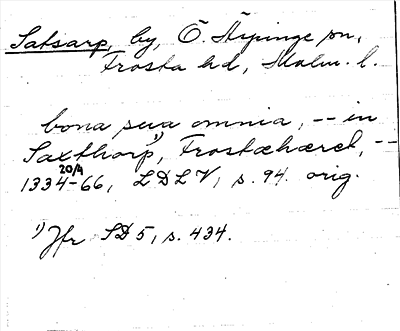 Satsarp, by, Ö. Stspinge sn,
Frosta hd, Malm. l.
bona sua omnia, -- in
Saxthorp,¹⁾ Frostæhæret, --
1334 20/9 -66, LDLV, s. 94. orig.
¹⁾ Jfr SD 5, s. 434.